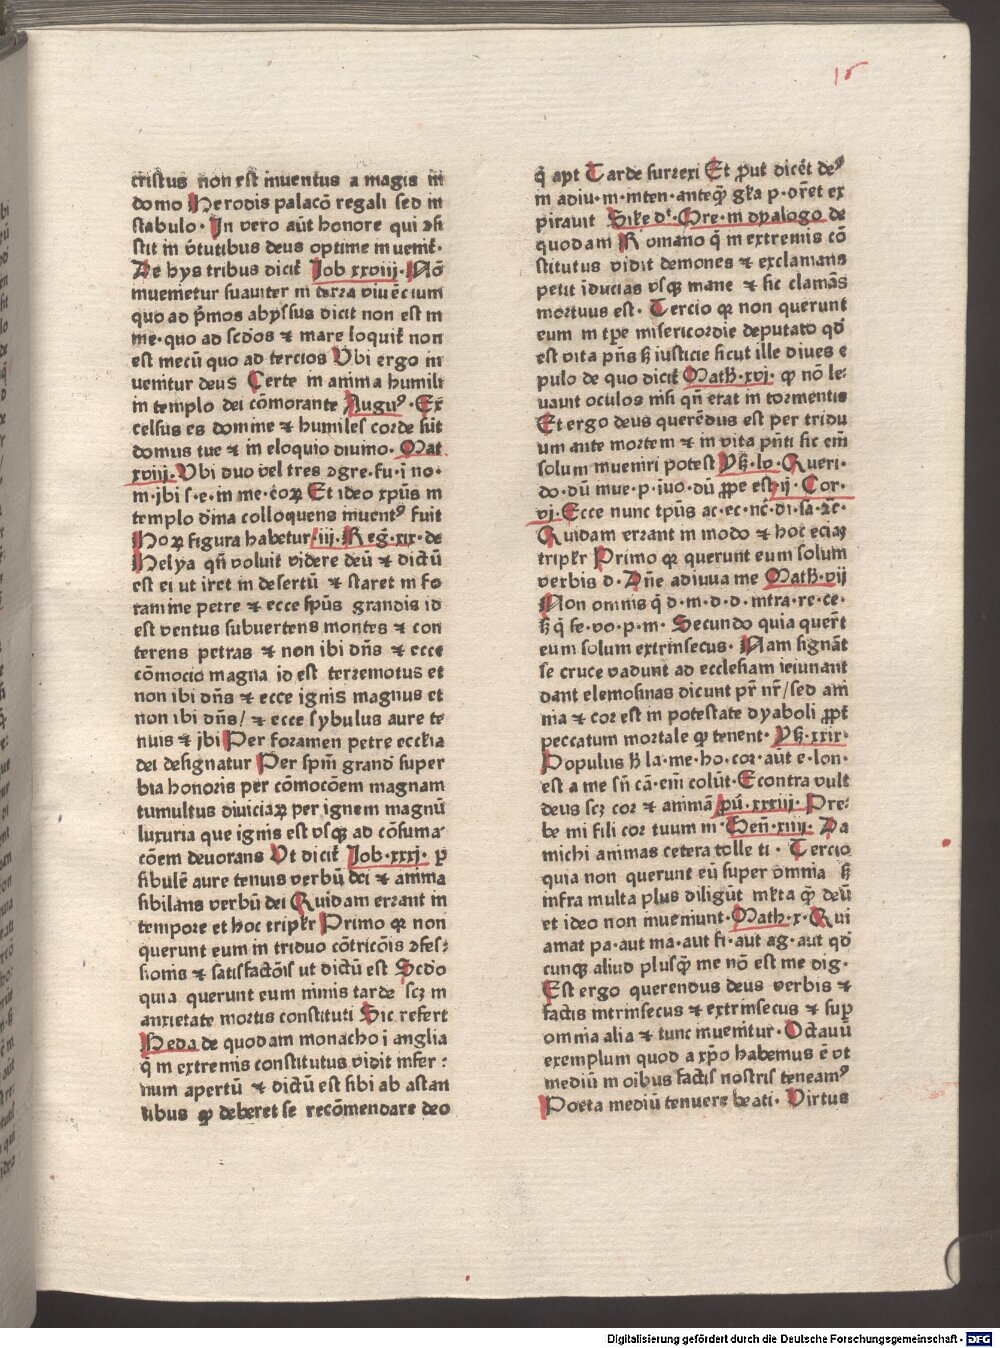 15
cristus non est inuentus a magis in
domo Herodis palacõ regali sed in
stabulo. In vero aũt honore qui ↄsi
stit in v̾tutibus deus optime inuenit̃.
De hys tribus dicit̃ Job xxviij. Nõ
inuemetur suauiter in terra viuẽcium
quo ad p̃mos abyssus dicit non est in
me. quo ad scd̃os ⁊ mare loquit̃ non
est mecũ quo ad tercios Vbi ergo in
uenitur deus Certe in anima humili
in templo dei cõmorante Augu⁹. Ex̃
celsus es domine ⁊ humiles corde sũt
domus tue ⁊ in eloquio diuino. Mat
xviij. Vbi duo vel tres ↄgre. fu. i no.
m. ibi s. e. in me. eoꝝ Et ideo xp̃us in
templo diuina colloquens inuent⁹ fuit
Hoꝝ figura habetur. iij. Reg̃. xix. de
Helya qñ voluit videre deũ ⁊ dictũ
est ei ut iret in desertũ ⁊ staret in fo
ramine petre ⁊ ecce sp̃us grandis id
est ventus subuertens montes ⁊ con
terens petras ⁊ non ibi dñs ⁊ ecce
cõmocio magna id est terremotus et
non ibi dñs ⁊ ecce ignis magnus et
non ibi dñs / ⁊ ecce sybulus aure te
nuis ⁊ ibi Per foramen petre eccl̃ia
dei designatur Per sp̃m grand̃ super
bia honoris per cõmocõem magnam
tumultus diuiciaꝝ per ignem magnũ
luxuria que ignis est vsqꝫ ad cõsuma
cõem deuorans Vt dicit̃ Job. xxxj. p̱
sibulẽ aure tenuis verbũ dei ⁊ anima
sibilans verbũ dei Quidam errant in
tempore et hoc tripl̃r Primo qꝛ non
querunt eum in triduo cõtricõis ↄfes⸗
sionis ⁊ satisfactõis ut dictũ est Scd̃o
quia querunt eum nimis tarde scꝫ in
anxietate mortis constituti Sic refert
Beda de quodam monacho i anglia
q̃ in extremis constitutus vidit infer⸗
num apertũ ⁊ dictũ est sibi ab astan
tibus ꝙ deberet se recõmendare deo
q̃ ayt Tarde surrexi Et p̃ut dicẽt de⁹
in adiu. m. inten. anteq̃ȝ gl̃ia p. or̃et ex
pirauit Sil̃e d̃t. Gre. in dyalogo de
quodam Romano q̃ in extremis cõ
stitutus vidit demones ⁊ exclamans
petit iducias vsqꝫ mane ⁊ sic clamãs
mortuus est. Tercio qꝛ non querunt
eum in tp̃e misericordie deputato qd̃
est vita p̃ns sꝫ iusticie sicut ille diues e
pulo de quo dicit̃ Math̃. xvj. ꝙ nõ le⸗
uauit oculos nisi qñ erat in tormentis
Et ergo deus querẽdus est per tridu
um ante mortem ⁊ in vita p̃nti sic em̃
solum inueniri potest Ysꝫ. lv. Queri.
do. dũ inue. p. iuo. dũ p̱pe est. ij. Cor.
vj. Ecce nunc tp̃us ac. ec. nc̃. di. sa. ⁊c̃.
Quidam errant in modo ⁊ hoc eciaȝ
tripl̃r Primo qꝛ querunt eum solum
verbis d. Dñe adiuua me Math̃. vij
Non omnis q̃ d. m. d. d. intra. re. ce.
sꝫ q̃ fe. vo. p. m. Secundo quia quer̃t
eum solum extrinsecus. Nam signãt
se cruce vadunt ad ecclesiam ieiunant
dant elemosinas dicunt pr̃ nr̃ / sed ani
ma ⁊ cor est in potestate dyaboli p̱pt̃
peccatum mortale qꝫ tenent. Ysꝫ. xxix.
Populus h̃ la. me. ho. cor. aũt e. lon.
est a me sñ cã. em̃ colũt. Econtra vult
deus scꝫ cor ⁊ animã p̱ũ. xxxiij. Pre⸗
be mi fili cor tuum m. Geñ. xiiij. Da
michi animas cetera tolle ti. Tercio
quia non querunt eũ super omnia sꝫ
infra multa plus diligũt ml̃ta q̃ȝ deũ
et ideo non inueniunt. Math. x. Qui
amat pa. aut ma. aut fi. aut ag. aut qd̃
cunqꝫ aliud plusq̃ȝ me nõ est me dig.
Est ergo querendus deus verbis ⁊
factis intrinsecus ⁊ extrinsecus ⁊ sup̱
omnia alia ⁊ tunc inuenitur. Octauũ
exemplum quod a xp̃o habemus ẽ vt
mediũ in oĩbus factis nostris teneam⁹
Poeta mediũ tenuere beati. Virtus
Digitalisierung gefördert durch die Deutsche Forschungsgemeinschaft - DFG